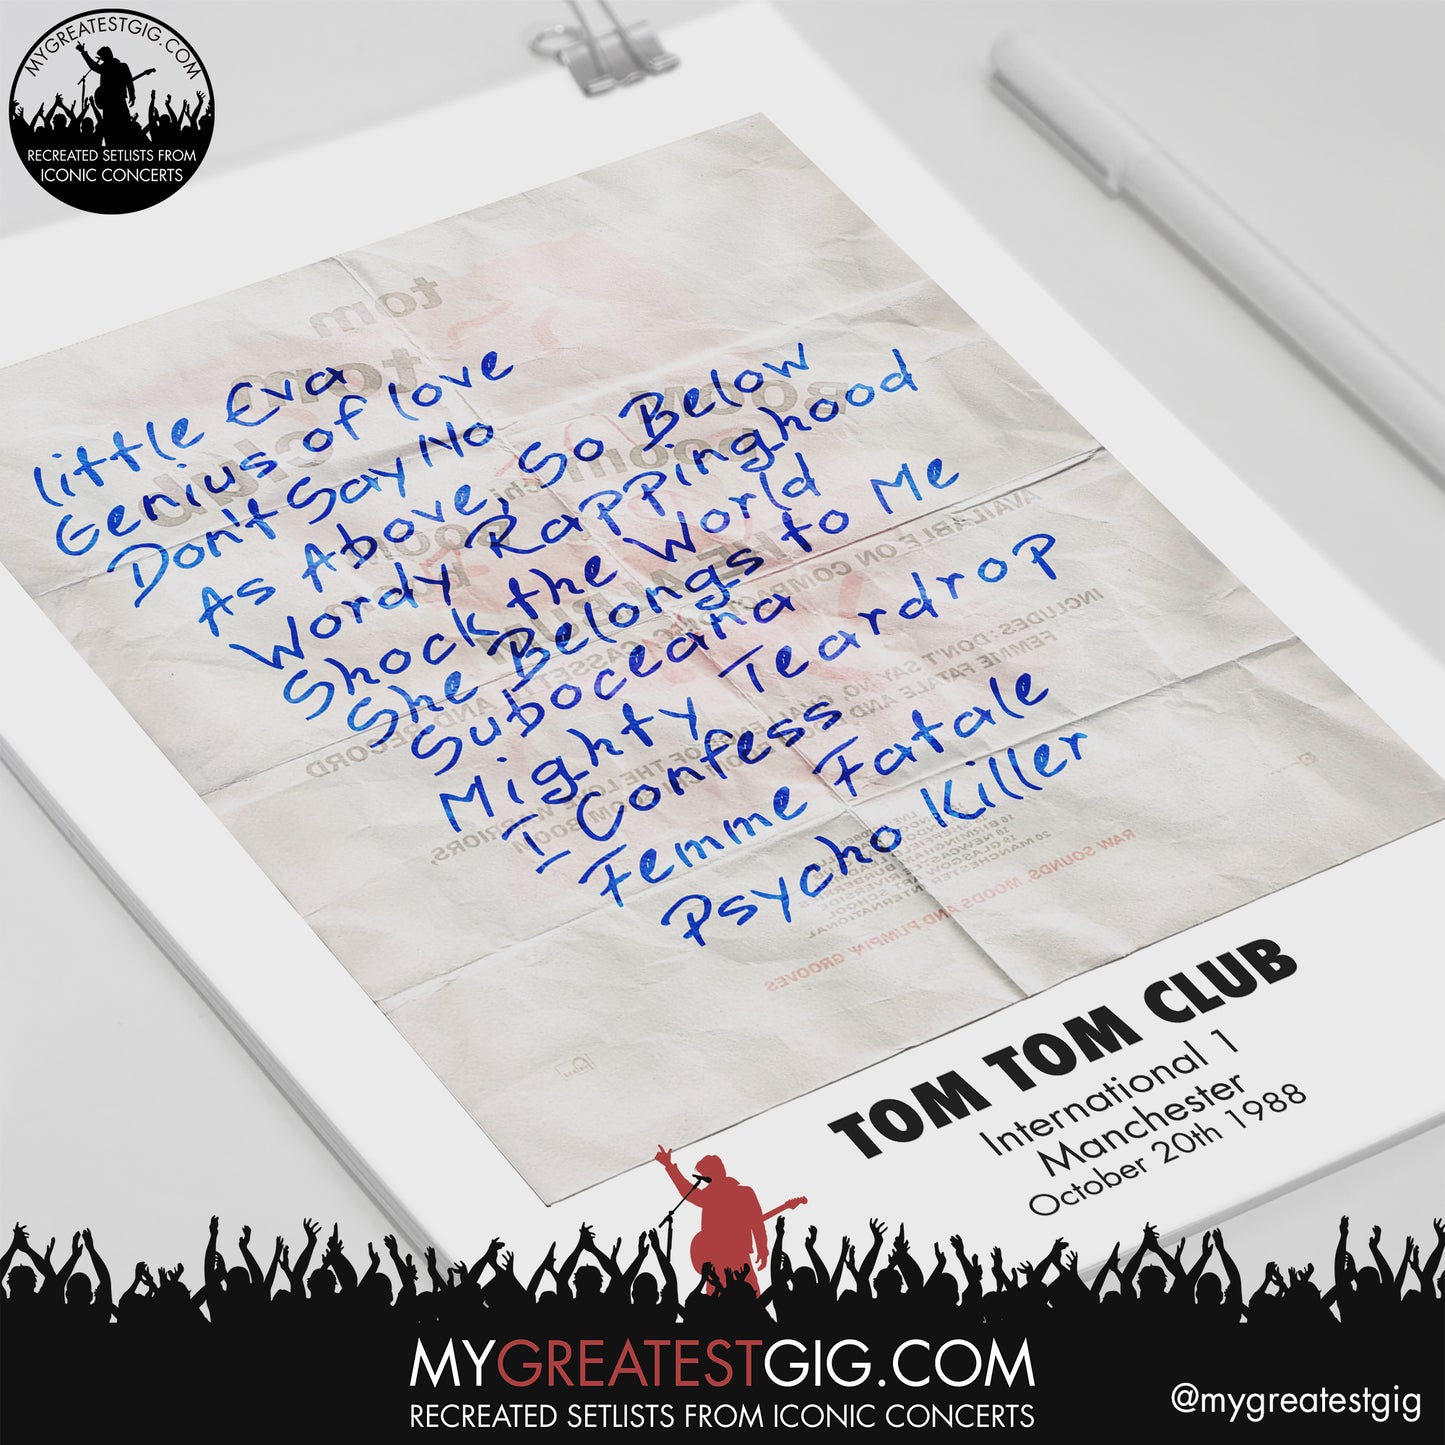 MYGREATESTGIG.COM
RECREATED SETLISTS FROM
ICONIC CONCERTS
little Eva
Genius of love
Don't Say No
As Above, So Below
Wordy Rappinghood
Shock the World
She Belongs to Me
Suboceana
Mighty Teardrop
I Confess
Femme Fatale
Psycho Killer
tom
tom
club
BOOM
boom
AVAILABLE ON COMPACT
CASSETTE AND RECORD
INCLUDES - DON'T SAY NO,
CHALLENGE OF THE LOVE WARRIORS,
FEMME FATALE AND
20 MANCHESTER INTERNATIONAL
RAW SOUNDS, MOODS AND PUMPIN' GROOVES
TOM TOM CLUB
International 1
Manchester
October 20th 1988
MYGREATESTGIG.COM
RECREATED SETLISTS FROM ICONIC CONCERTS
@mygreatestgig